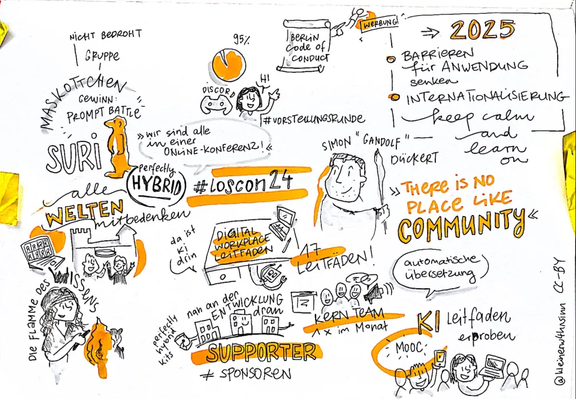 NICHT BEDROHT
GRUPPE
MASKOTTCHEN
GEWINN:
PROMPT BATTLE
SURI
95%
DISCORD
HI
#VORSTELLUNGSRUNDE
BERLIN
Code of
CONDUCT
WERBUNG
2025
BARRIEREN
für ANWENDUNG
senken
INTERNATIONALISIERUNG
keep calm
and
learn
on
»wir sind alle
in einer
ONLINE-KONFERENZ!«
perfectly
HYBRID
#LOSCON24
SIMON "GANDOLF"
DÜCKERT
alle
WELTEN
mitbedenken
»THERE IS NO
PLACE LIKE
COMMUNITY«
da ist
KI
drin
DIGITAL
WORKPLACE
LEITFADEN
17
LEITFÄDEN!
automatische
Übersetzung
DIE FLAMME DES WISSENS
perfectly
hybrid
kits
nah an der
ENTWICKLUNG
dran
SUPPORTER
≠ SPONSOREN
KERNTEAM
1x im Monat
KI Leitfaden
erproben
MOOC
@kleinerw4hnsinn CC-BY